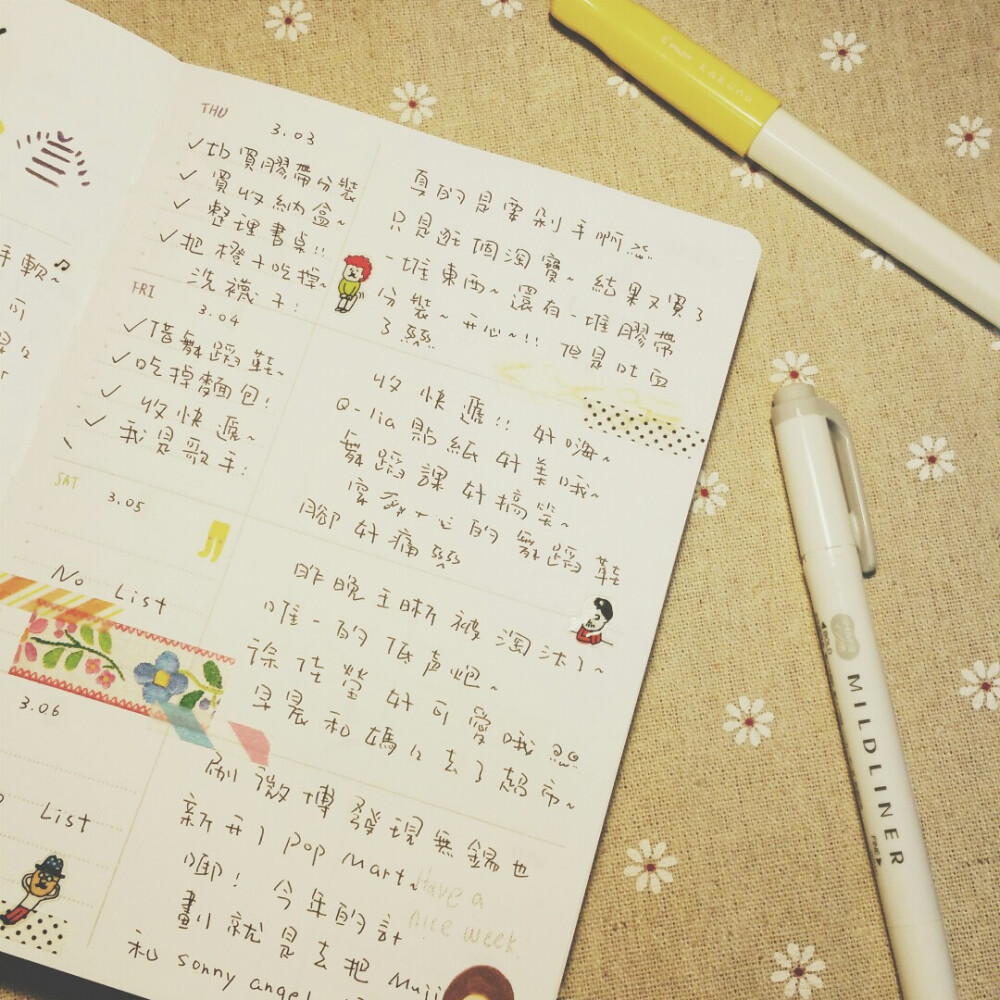 手軟
可
THU
3.03
✓拍賣膠帶分裝
✓買收納盒~
✓整理書桌!!
✓把橙子吃掉~
洗襪子!
真的是要剁手啊
只是逛個淘寶~ 結果又買了
一堆東西~ 還有一堆膠帶
分裝~ 开心~!! 但是吐血
了
FRI
3.04
✓借舞蹈鞋~
✓吃掉麵包!
✓收快遞~
✓我是歌手!
收快遞!! 好嗨~
Q-lia 貼紙好美哦~
舞蹈課好搞笑~
的舞蹈鞋
腳好痛
SAT
3.05
No List
昨晚王晰被淘汰了~
唯一的低声炮~
徐佳瑩好可愛哦
早晨和媽々去了超市~
3.06
List
刷微博發現無錫也
新开了 Pop Mart~
唧! 今年的計
劃就是去把 Muji
和 sonny angel
Have a
nice week
kakuno
MILDLINER
FINE